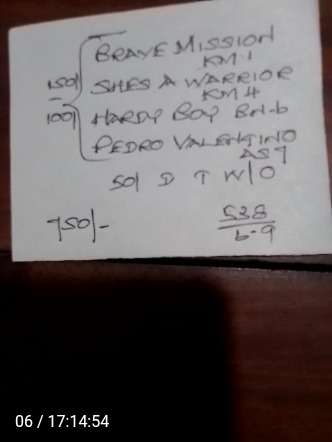 BRAVE MISSION
KM 1
150/ SHES A WARRIOR
KM 4
100/ HARDY BOY BN-6
PEDRO VALENTINO
AS 9
50/ D T W/O
950/-
538
6-9
06 / 17:14:54